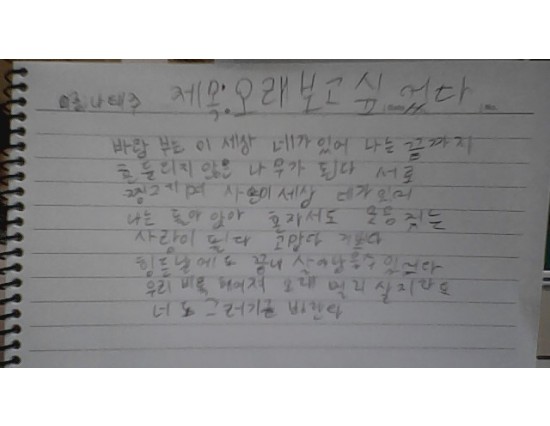 이름 나태주 제목: 오래 보고 싶었다
바람 부는 이 세상 네가 있어 나는 끝까지
흔들리지 않은 나무가 된다 서로
찡그리며 사는 이 세상 네가 있어
나는 돌아 앉아 혼자서도 웃음 짓는
사람이 된다 고맙다 기쁘다
힘든 날에도 끝내 살아남을 수 있었다
우리 비록 헤어져 오래 멀리 살지라도
너도 그러기를 바란다